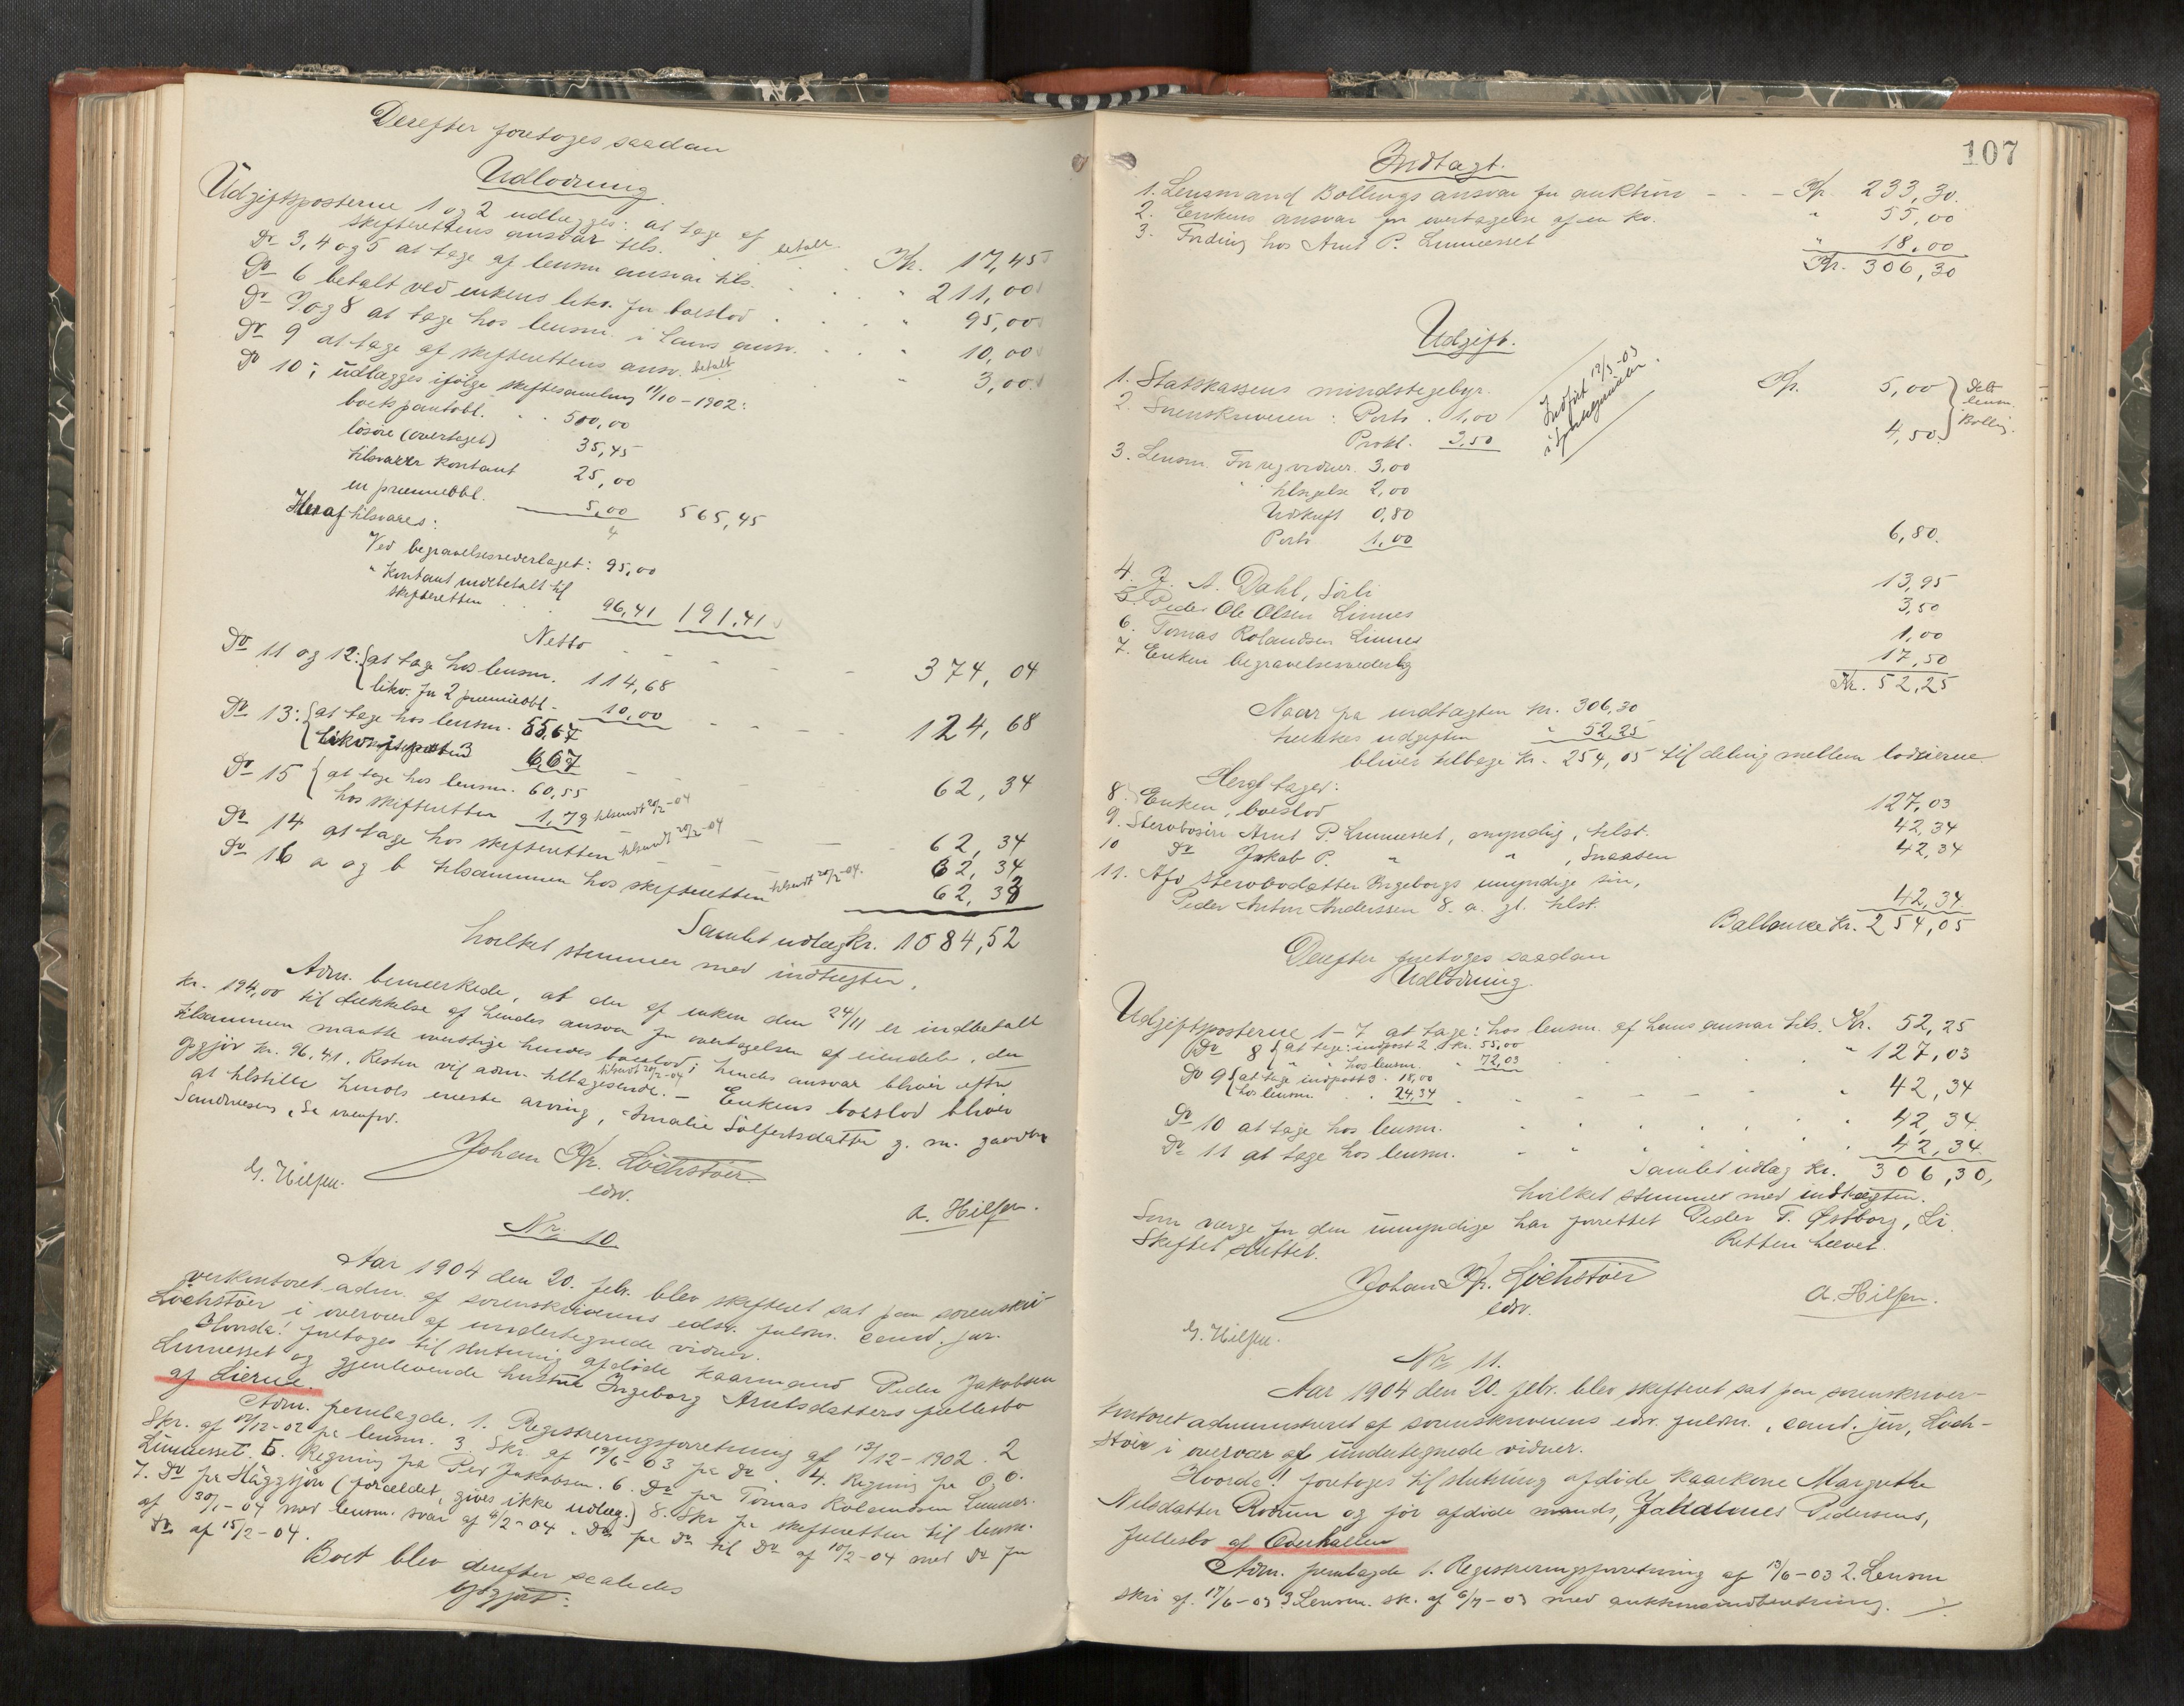 Derefter foretoges saadan
Udlodning.
Udgiftsposterne 1 og 2 udlægges: at tage af
skifterettens ansvar tils. betalt Kr. 17,45
Do 3, 4 og 5 at tage af lensm ansvar tils. " 211,00
Do 6 betalt ved enkens likv. for boeslod " 95,00
Do 7 og 8 at tage hos lensm. i hans ansv. " 10,00
Do 9 at tage af skifterettens ansv. betalt " 3,00
Do 10; udlægges ifølge skiftesamling 11/10-1902:
boets pantobl. 500,00
løsøre (overtaget) 35,45
tilsvarer kontant 25,00
en præmieobl. 5,00 565,45
Heraf tilsvares:
Ved begravelsesvederlaget: 95,00
" kontant indbetalt til
skifteretten 96,41 191,41
Netto 374,04
Do 11 og 12: { at tage hos lensm. 114,68
likv. for 2 præmieobl. 10,00 124,68
Do 13: { at tage hos lensm. 55,67
6,67 62,34
Do 15 { at tage hos lensm. 60,55
hos skifteretten 1,79 tilsendt 20/2-04 62,34
Do 14 at tage hos skifteretten tilsendt 20/2-04 62,34
Do 16 a og b tilsammen hos skifteretten tilsendt 20/2-04. 62,33
Samlet udlæg kr. 1084,52
hvilket stemmer med indtægten.
Adm. bemærkede, at der af enken den 24/11 er indbetalt
kr. 194,00 til dækkelse af hendes ansvar for overtagelsen af eiendele, der
tilsammen maatte overstige hendes boeslod; hendes ansvar bliver efter
opgjør kr. 96,41. Resten vil adm. tilbagesende. tilsendt 20/2-04 – Enkens boeslod bliver
at tilstille hendes eneste arving, Amalie Sølfertsdatter g. m. gaardbr
Sandnesens, se ovenfor.
Johan Kr. Löchstöer
edsv.
G. Hilsen. A. Hilsen.
Nr. 10
Aar 1904 den 20. febr. blev skifteret sat paa sorenskri-
verkontoret adm. af sorenskriverens edsv. fuldm. cand. jur.
Löchstöer i overvær af undertegnede vidner.
Hvorda! foretoges til slutning afdøde kaarmand Peder Jakobsen
Linnesset og gjenlevende hustru Ingeborg Arntsdatters fællesbo
af Lierne.
Adm. fremlagde. 1. Registreringsforretning af 13/12-1902. 2
Skr. af 17/12-02 fra lensm. 3. Skr. af 19/6-03 fra do. 4. Regning fra O. O.
Linnesset. 5. Regning fra Peder Jakobsen. 6. Do fra Tomas Rolandsen Linnes.
7. Do fra Häggsjön (forældet, gives ikke udlæg.) 8. Skr fra skifteretten til lensm.
af 30/1-04 med lensm. svar af 4/2-04. Do fra do til do af 10/2-04 med do fra
do af 15/2-04.
Boet blev derefter saaledes
opgjort:
107
Indtægt.
1. Lensmand Bollings ansvar for auktion Kr. 233,30.
2. Enkens ansvar for overtagelse af en ko. " 55,00
3. Fording hos Arnt P. Linnesset " 18,00
Kr. 306,30
Udgift.
1. Statskassens mindstegebyr. Kr. 5,00
2. Sorenskriveren: Porto 1,00
Prokl. 3,50 4,50.
} Delt lensm. Bolling.
Indført 12/3-03
3. Lensm. For reg. vidner. 3,00
" tilsigelse 2,00
Udskrift 0,80
Porto 1,00 6,80.
4. J. A. Dahl, Sörli 13,95
5. Peder Ole Olsen Linnes 3,50
6. Tomas Rolandsen Linnes 1,00
7. Enken begravelsesvederlag 17,50
Kr. 52,25
Naar fra indtægten kr. 306,30
trækkes udgiften " 52,25
bliver tilbage kr. 254,05 til deling mellem lodeierne
Heraf tager:
8. Enken, boeslod 127,03
9. Stervbosön Arnt P. Linnesset, myndig, tilst. 42,34
10 Do Jakob P. " " , Snaasen 42,34
11. Afd stervbodatter Ingeborgs umyndige sön,
Peder Anton Anderssen 8. a. gl. tilst. 42,34
Ballance Kr. 254,05
Derefter foretoges saadan
Udlodning.
Udgiftsposterne 1-7 at tage: hos lensm. af hans ansvar tils. Kr. 52,25
Do 8 { at tage: indpost 2 kr. 55,00
" " hos lensm. " 72,03 " 127,03
Do 9 { at tage indpost 3 18,00
hos lensm. 24,34 " 42,34
Do 10 at tage hos lensm. " 42,34
Do 11 at tage hos lensm. " 42,34
Samlet udlæg kr. 306,30,
hvilket stemmer med indtægten.
Som værge for den umyndige har forrettet Peder T. Østborg, Li.
Skiftet sluttet. Retten hævet.
Johan Kr. Löchstöer
edsv.
G. Hilsen. A. Hilsen.
Nr. 11.
Aar 1904 den 20. febr. blev skifteret sat paa sorenskriver-
kontoret administreret af sorenskriverens edsv. fuldm., cand. jur, Löch-
stöer i overvær af undertegnede vidner.
Hvorda! foretoges til slutning afdöde kaarkone Margrethe
Nilsdatter Rodum og för afdöde mands, Johannes Pedersens,
fællesbo af Overhallen
Adm. fremlagde 1. Registreringsforretning af 13/6-03 2. Lensm
skr. af 17/6-03 3. Lensm. sk. af 6/7-03 med auktionsindberetning. ./.